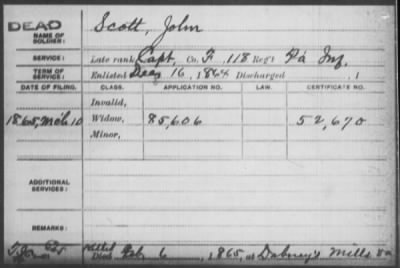 DEAD
NAME OF SOLDIER: Scott, John
SERVICE: Late rank Capt, Co. F, 118 Reg't Pa Inf.
TERM OF SERVICE: Enlisted 16, 1864 Discharged , 1
DATE OF FILING. CLASS. APPLICATION NO. LAW. CERTIFICATE NO.
Invalid,
1865, Mch 10 Widow, 85,606 52,670
Minor,
ADDITIONAL SERVICES:
REMARKS:
Killed
Died Feb 6, 1865, at Dabney's Mills Va